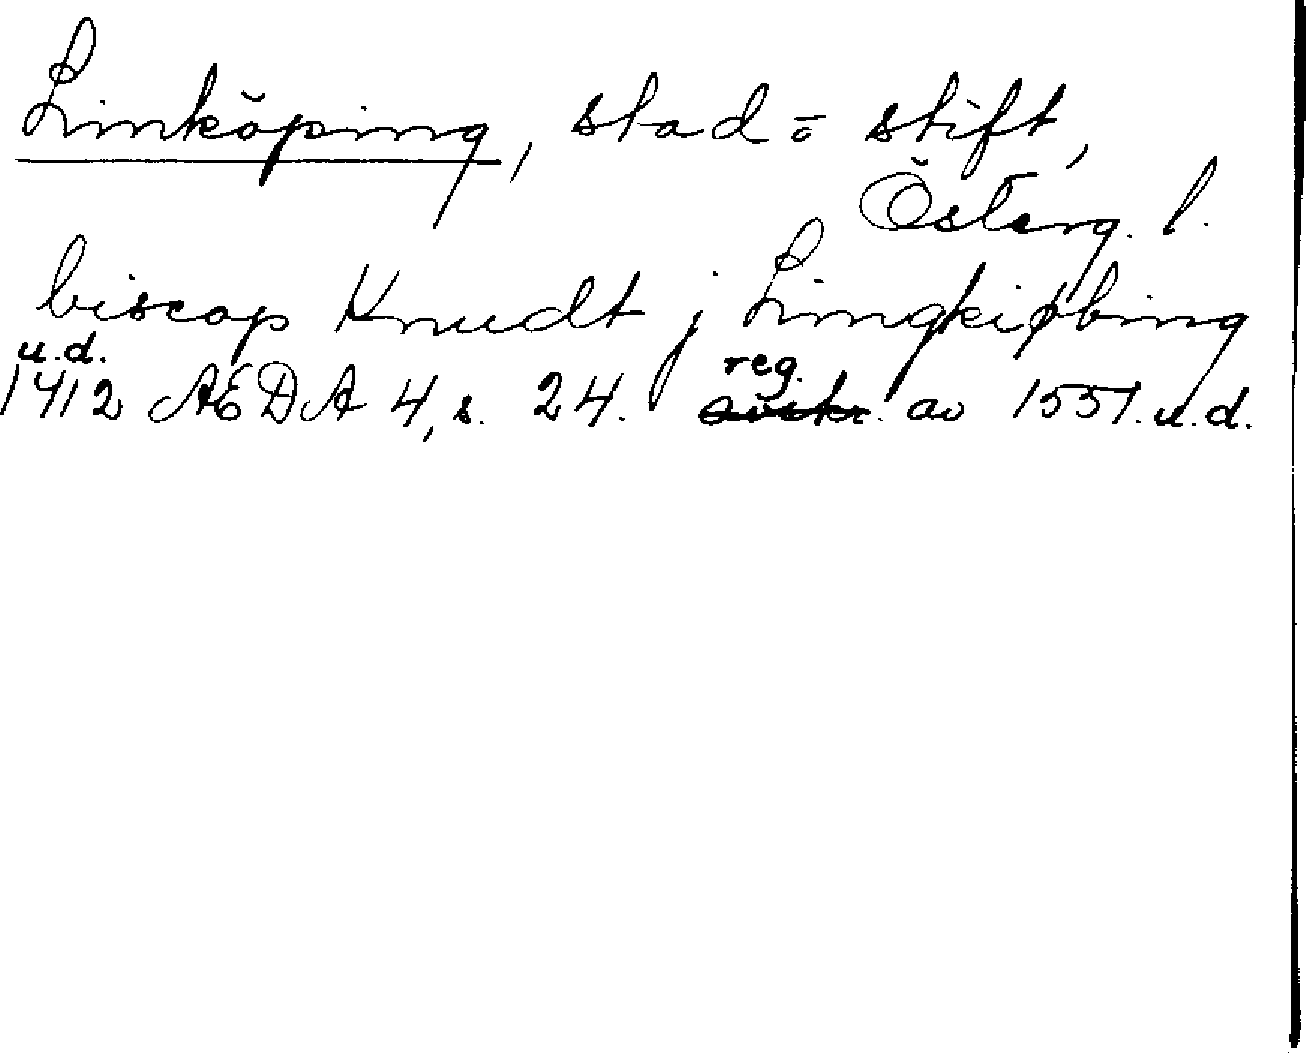 Linköping, stad o stift,
Österg. l.
biscop Knudt j Lingkiøbing
u.d. reg.
1412 AEDA 4, s. 24. avskr. av 1551. u.d.